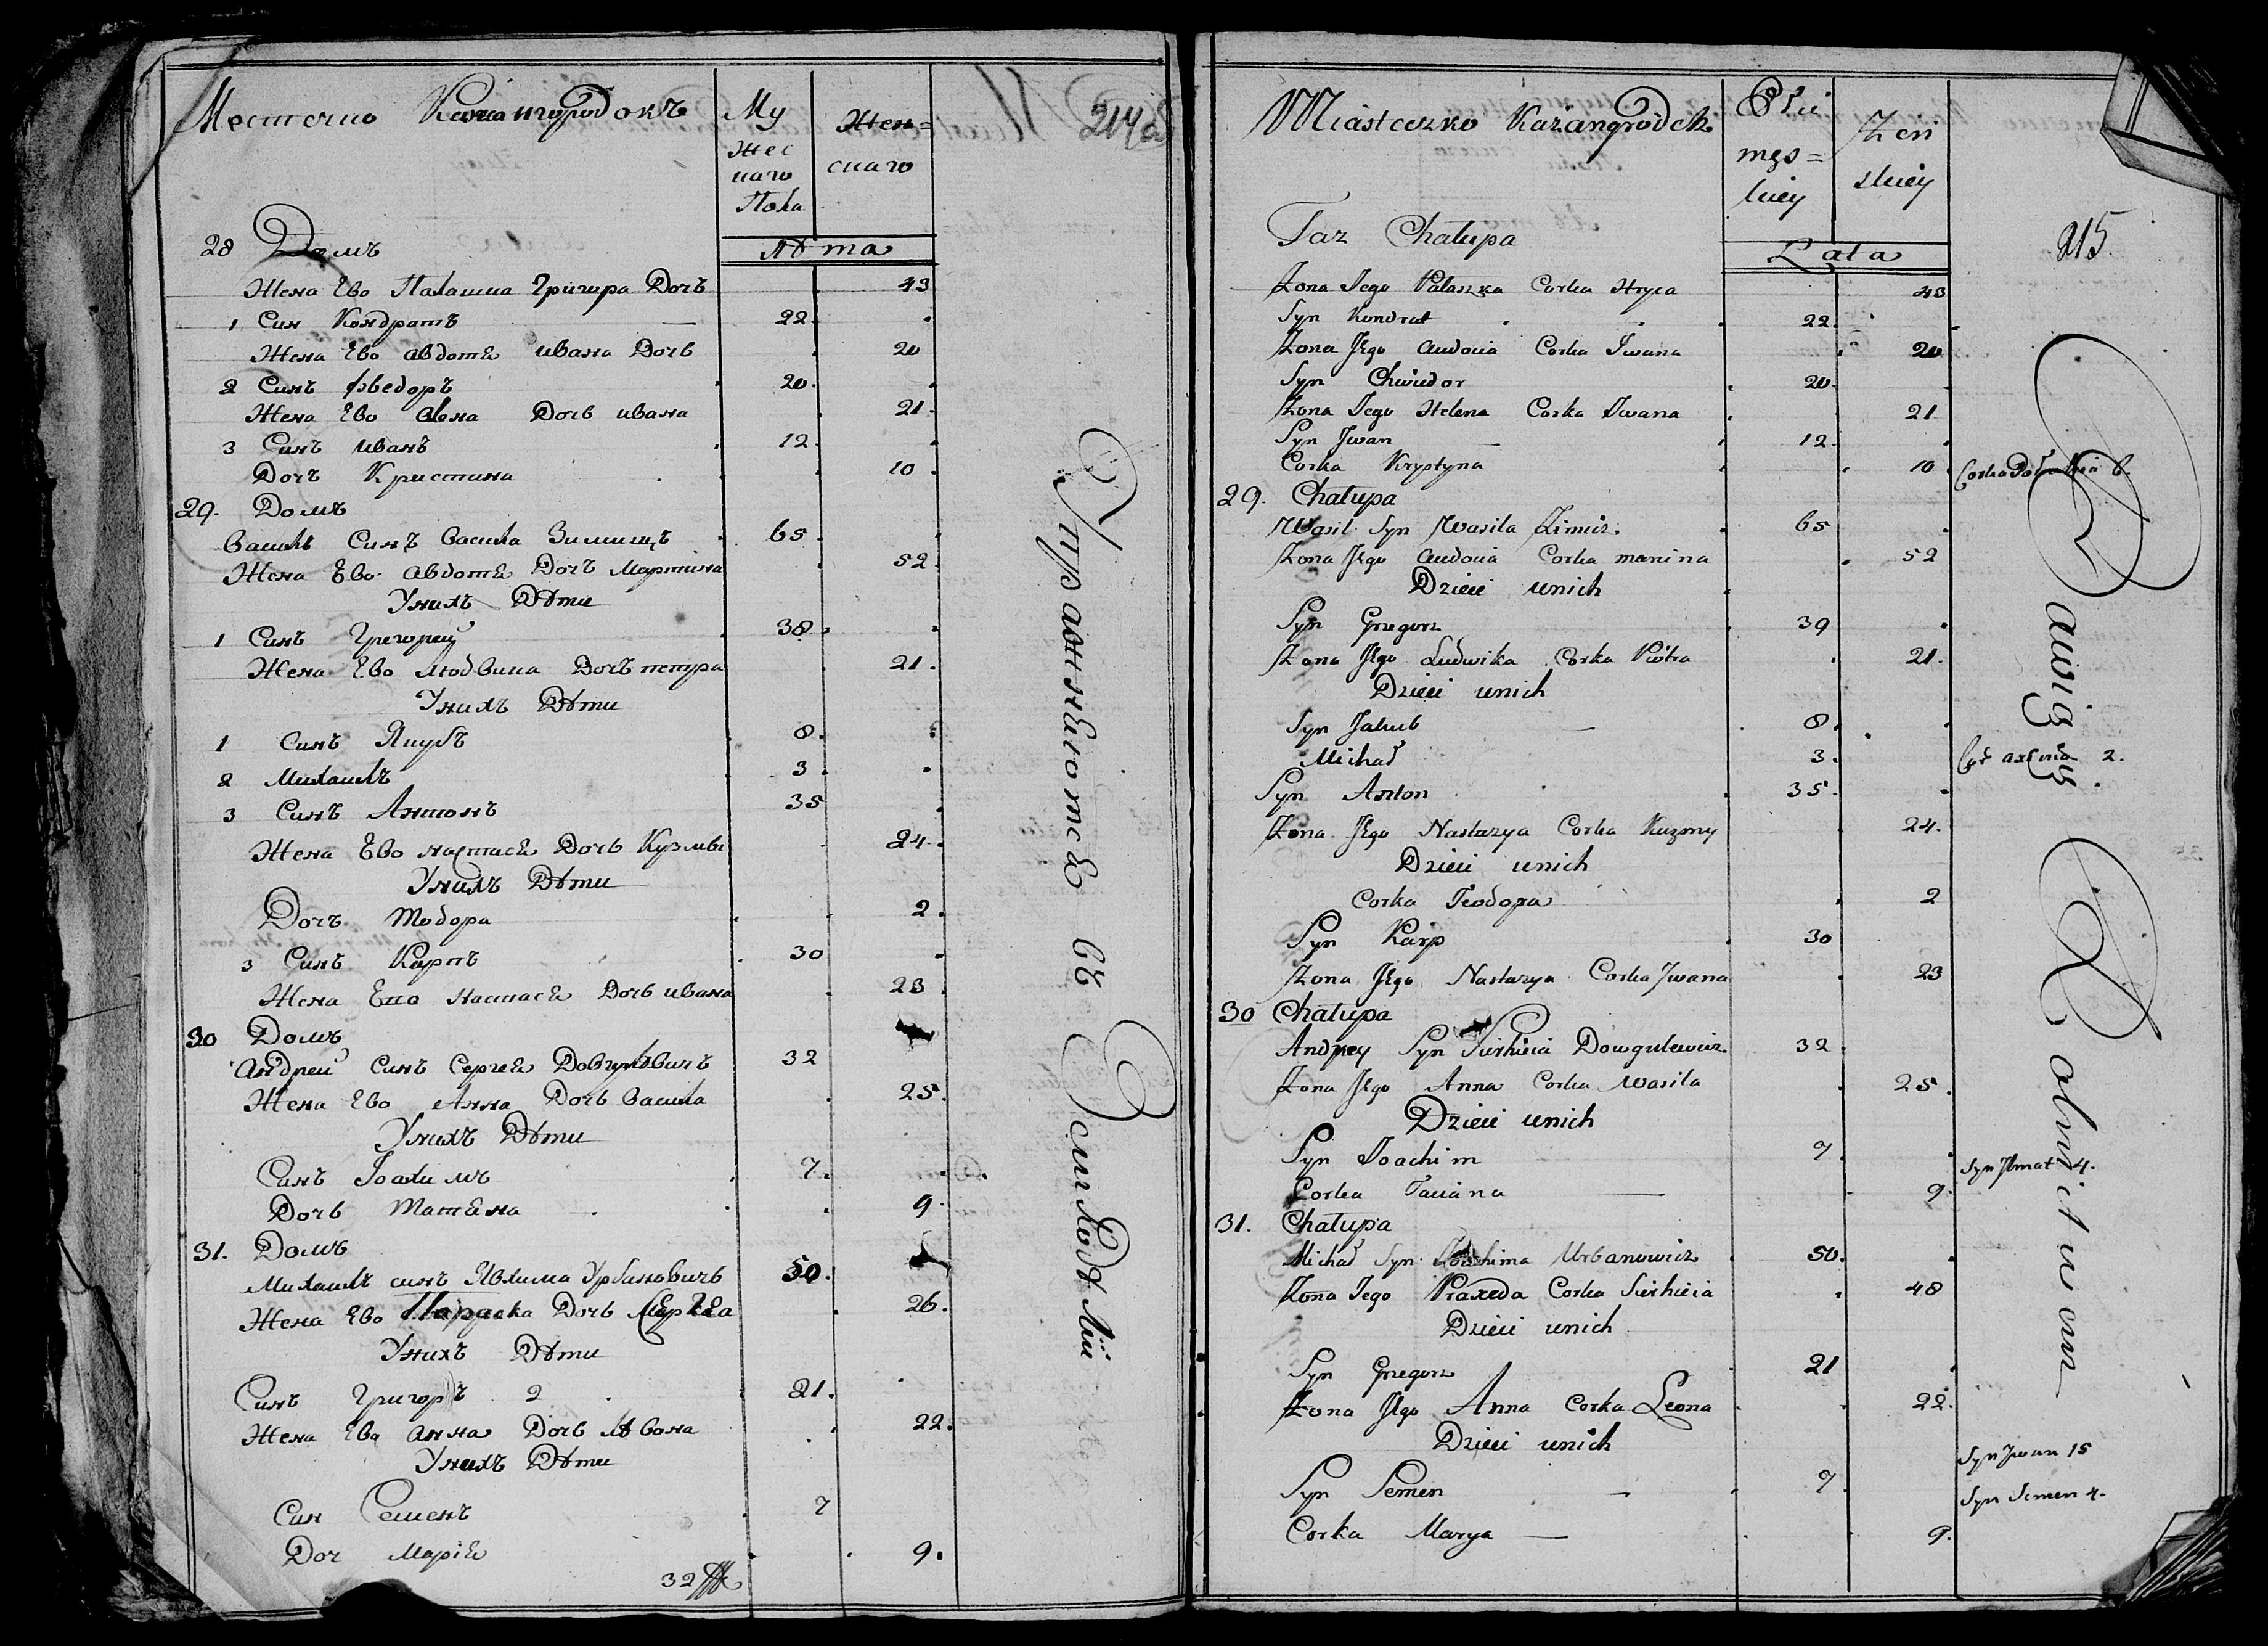 Местечко Кожангородокъ
Му
жес
каго
Пола
Жен=
скаго
Лѣта
28 Домъ
Жена Ево Палашка Григора Дочъ 43
1 Син Кондратъ 22
Жена Ево Авдотя ивана Дочь 20
2 Синъ Фведоръ 20
Жена Ево Алена Дочь ивана 21
3 Синъ иванъ 12
Дочъ Кристина 10
29. Домъ
Василь Синъ Василя 65
Жена Ево Авдотя Дочъ Мартина 52
Унихъ Дѣти
1 Синъ Григорей 38
Жена Ево Людвика Дочъ петра 21
Унихъ Дѣти
1 Синъ Якубъ 8
2 Михаилъ 3
3 Синъ Антонъ 35
Жена Ево настася Дочь Кузмы 24
Унихъ Дѣти
Дочъ Тодора 2
3 Синъ Карпъ 30
Жена Ево Настася Дочь ивана 23
30 Домъ
Андрей Синъ Сергея Довгулевичъ 32
Жена Ево Анна Дочь Василя 25
Унихъ Дѣти
Синъ Іоахимъ 7
Дочь Татяна 9
31. Домъ
Михаилъ синъ Яхима Урбановичъ 50
Жена Ево Параска Дочь Сергея 26
Унихъ Дѣти
Синъ Григоръ 2 21
Жена Ево анна Дочь Лѣвона 22
Унихъ Дѣти
Син Семенъ 7
Доч Марія 9
32
214
Упражняютсе въ Земледѣлїи
Miasteczko Każangródek
Płci
męs=
kiey
Zen
skiey
Lata
215
Taz Chałupa
Zona Jego Pałaszka Corka Hryca 43
Syn Kondrat 22
Zona Jego Audocia Corka Iwana 20
Syn Chwiedor 20
Zona Jego Helena Corka Iwana 21
Syn Jwan 12
Corka Krystyna 10 Corka 6.
29. Chałupa
Wasil Syn Wasila 65
Zona Jego Audocia Corka 52
Dzieci unich
Syn Grzegorz 39
Zona Jego Ludwika Corka Piotra 21
Dzieci unich
Syn Jakub 8
Michał 3 2.
Syn Anton 35
Zona Jego Nastazya Corka Kuzmy 24
Dzieci unich
Corka Teodora 2
Syn Karp 30
Zona Jego Nastazya Corka Jwana 23
30 Chałupa
Andrzey Syn Sierhieia Dowgulewicz 32
Zona Jego Anna Corka Wasila 25
Dzieci unich
Syn Joachim 7 Syn 4.
Corka Taciana 9
31. Chałupa
Michał Syn Joachima Urbanowicz 50
Zona Jego Praxeda Corka Sierhieia 48
Dzieci unich
Syn Grzegorz 21
Zona Jego Anna Corka Leona 22
Dzieci unich
Syn Jwan 15
Syn Semen 7 Syn Semen 4.
Corka Marya 9
Bawią się Rolnictwem